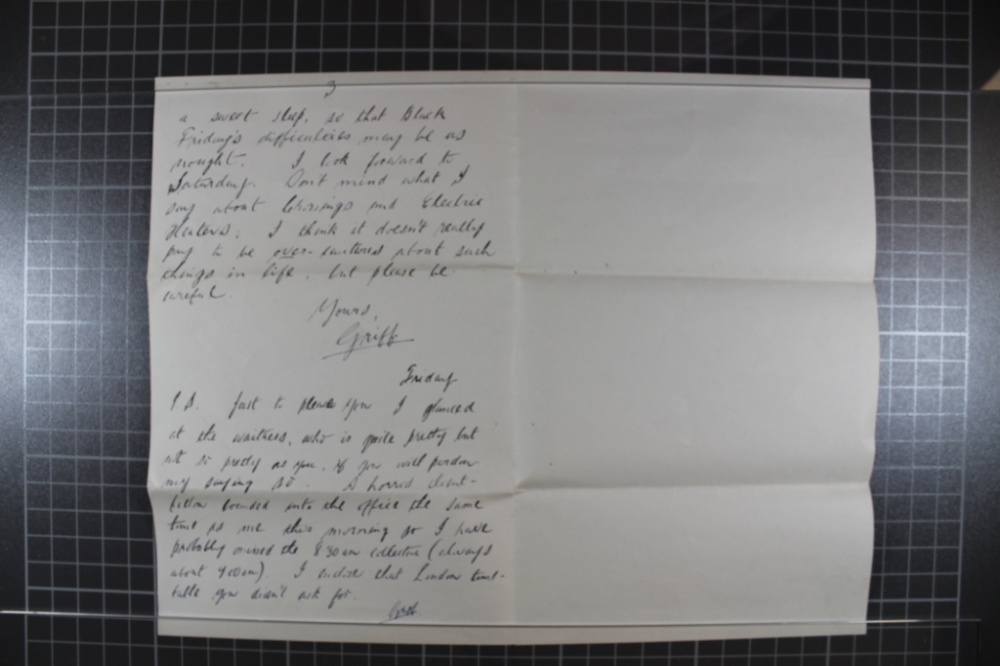 3
a sweet sleep, so that Black
Friday's difficulties may be as
nought. I look forward to
Saturday. Don't mind what I
say about and Electric
I think it doesn't really
pay to be over-cautious about such
things in life, but please be
careful.
Yours,
Griff
Friday
P.S. Just to please you I glanced
at the waitress, who is quite pretty but
not so pretty as you, if you will pardon
my saying so. A horrid
bounded into the office the same
time as me this morning so I have
probably missed the 8.30 am collection (always
about 9.00am). I enclose that London time-
table you didn't ask for.